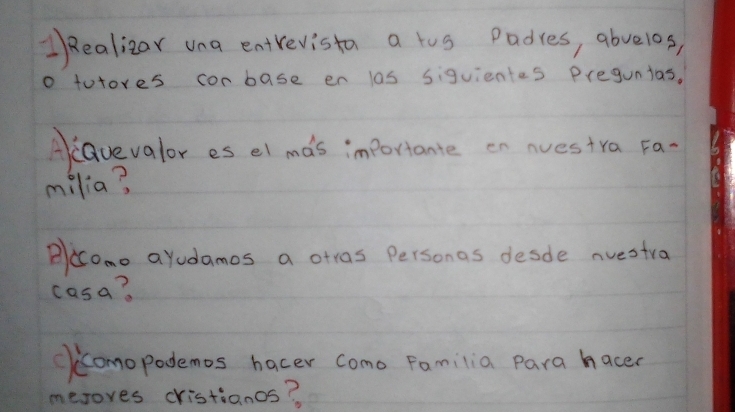 1) Realizar una entrevista a tus Padres, abuelos,
o tutores con base en las siguientes Preguntas.
A) ¿Que valor es el más importante en nuestra Fa-
milia?
B) ¿como ayudamos a otras Personas desde nuestra
casa?
c) ¿como podemos hacer como Familia para hacer
mejores cristianos?